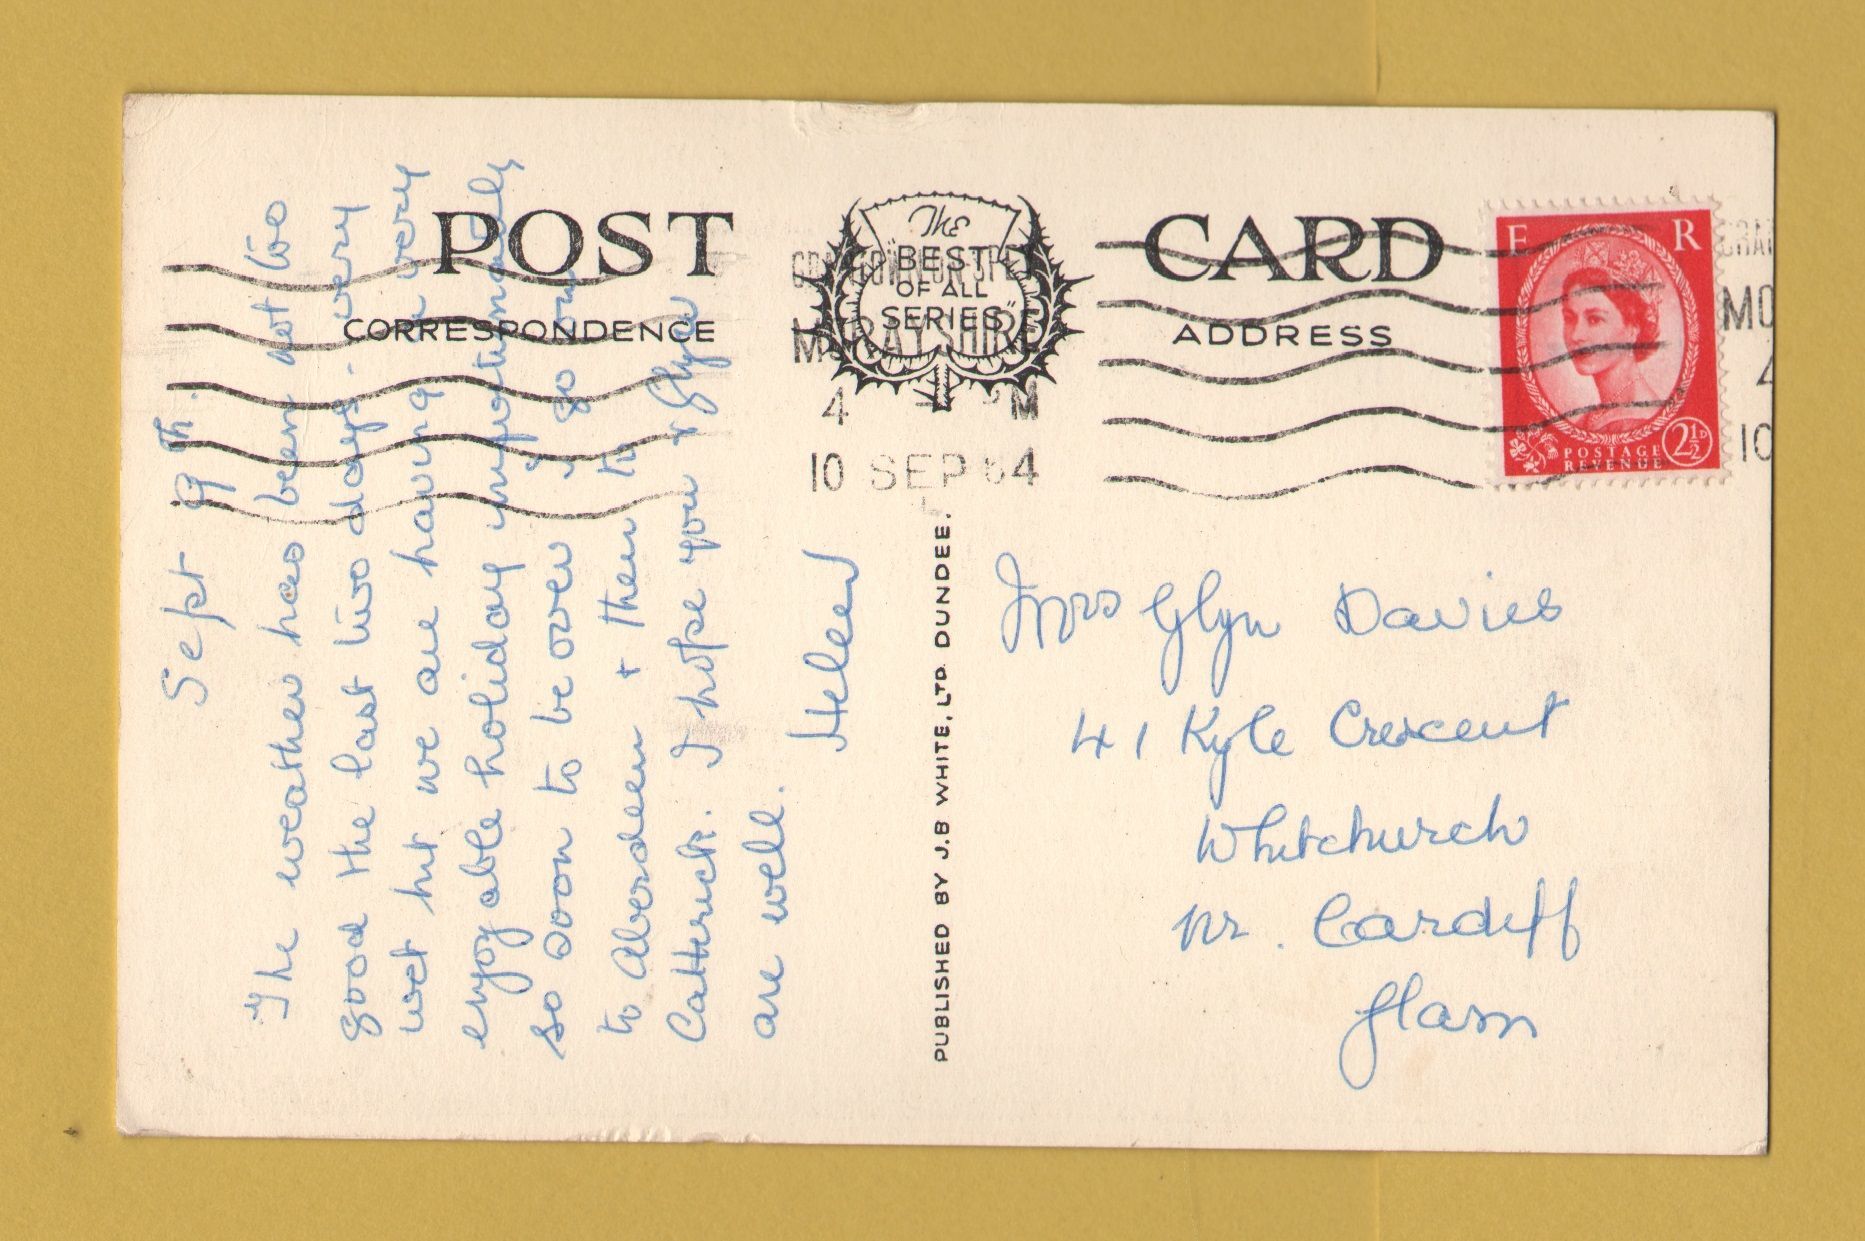 POST CARD
The
"BEST
OF ALL
SERIES"
CORRESPONDENCE
ADDRESS
E R
POSTAGE
REVENUE
2½D
MORAYSHIRE
4 PM
10 SEP 64
MO
10
Sept 9th.
The weather has been not too
good the last two days - very
wet but we are having a very
enjoyable holiday unfortunately
so soon to be over. I go on
to Aberdeen + then to
Catterick. I hope you & Glyn
are well.
Helen
PUBLISHED BY J.B WHITE, LTD. DUNDEE.
Mrs Glyn Davies
41 Kyle Crescent
Whitchurch
Nr. Cardiff
Glam